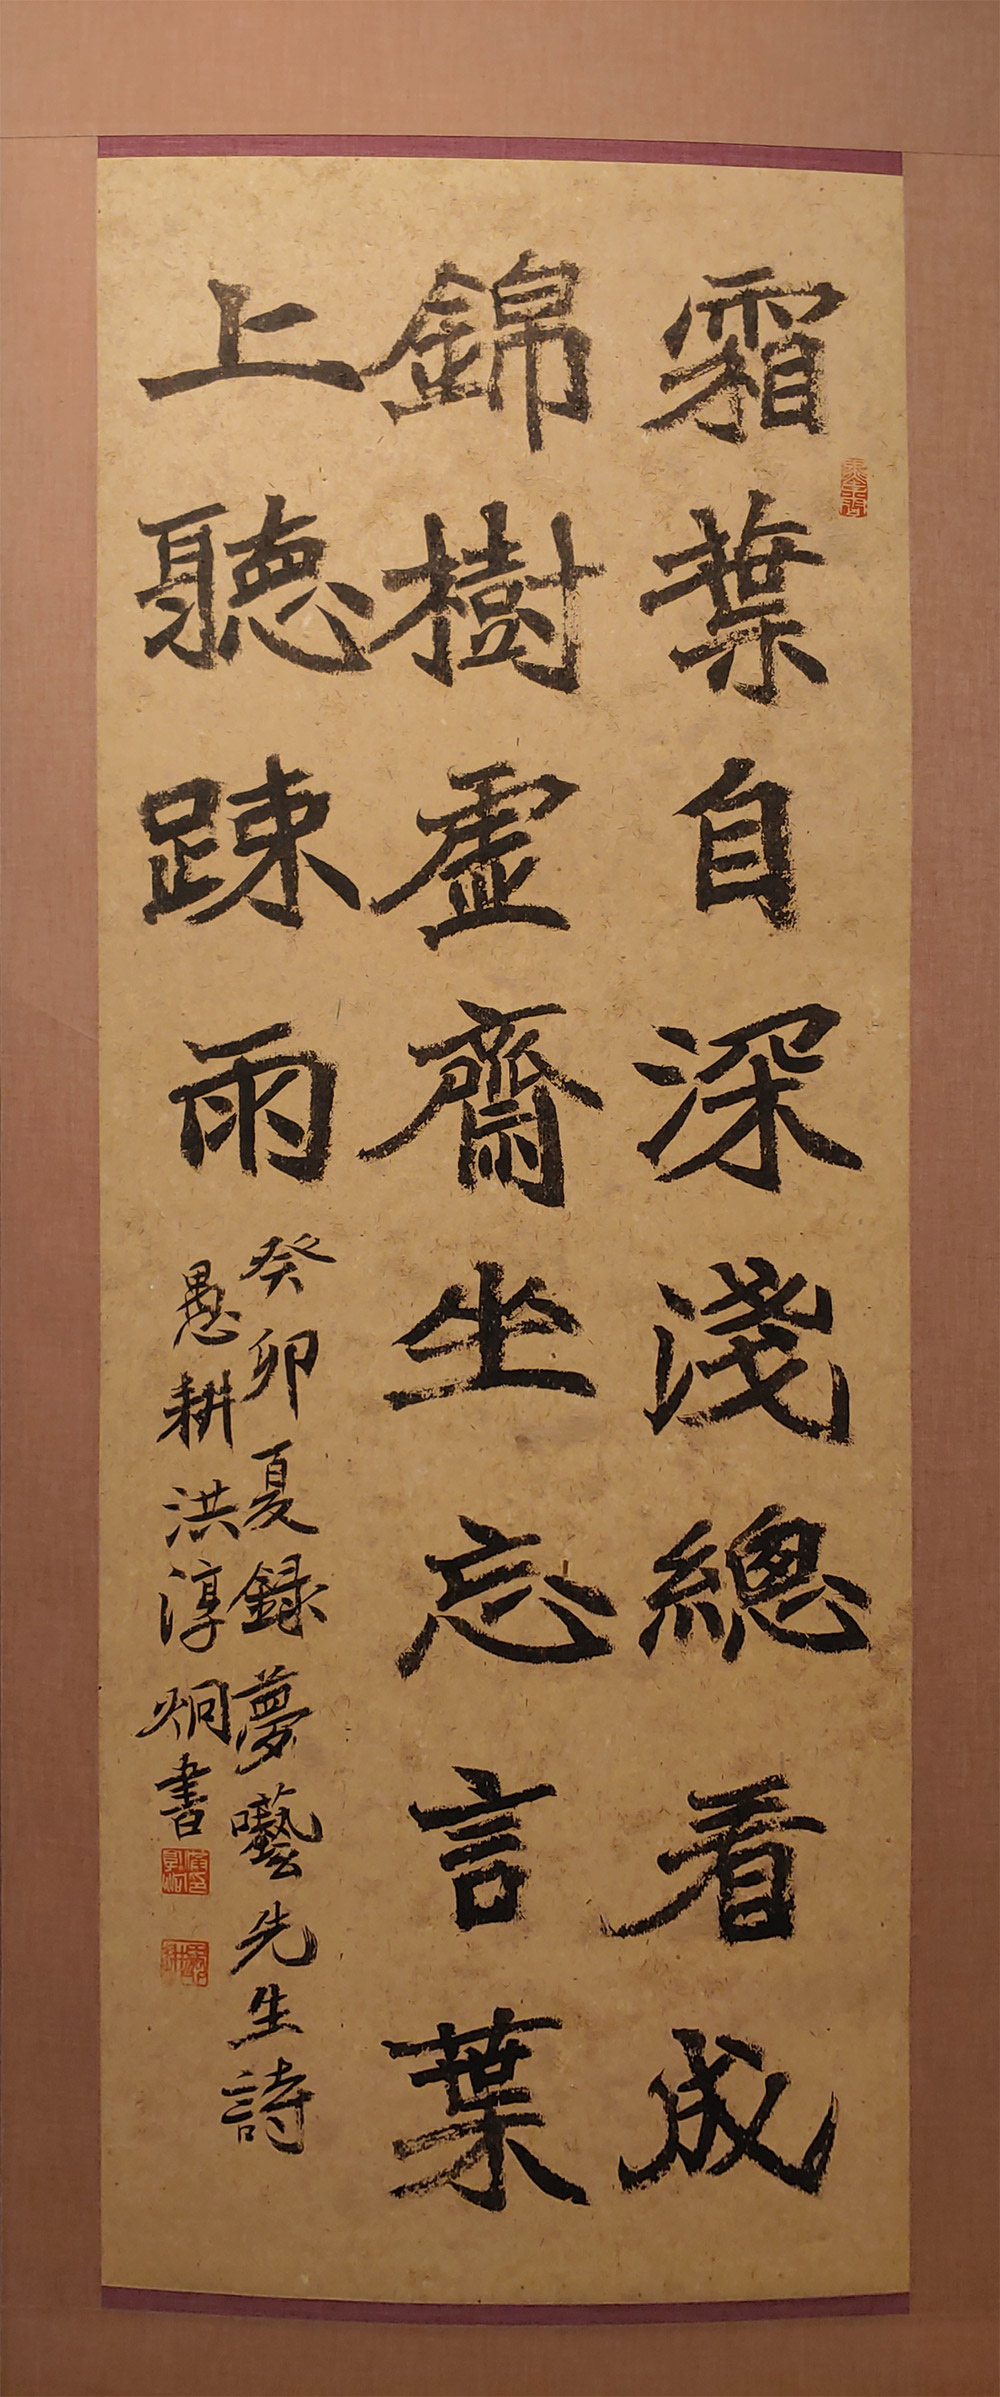 霜葉自深淺總看成
錦樹虛齋坐忘言葉
上聽踈雨
癸卯夏錄夢藝先生詩
愚耕洪淳炯書